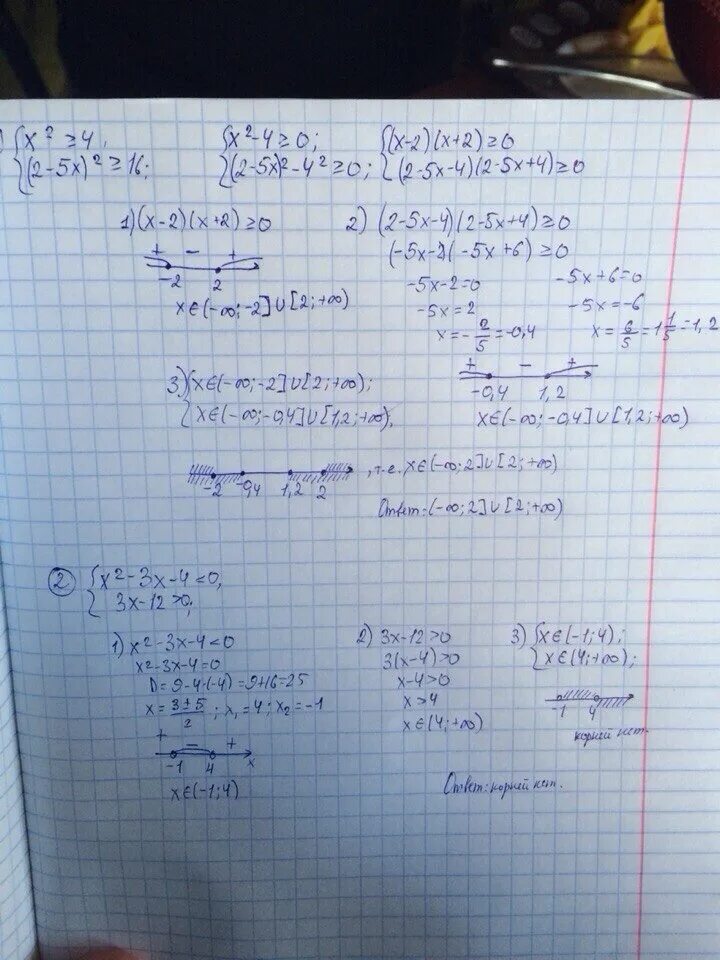 ) { x² ≥ 4, { x² - 4 ≥ 0; { (x-2)(x+2) ≥ 0
{ (2-5x)² ≥ 16; { (2-5x)² - 4² ≥ 0; { (2-5x-4)(2-5x+4) ≥ 0
1) (x-2)(x+2) ≥ 0
+ - +
-2 2
x∈(-∞;-2]∪[2;+∞)
2) (2-5x-4)(2-5x+4) ≥ 0
(-5x-2)(-5x+6) ≥ 0
-5x-2=0 -5x+6=0
-5x=2 -5x=-6
x=-2/5=-0,4 x=6/5=1 1/5=1,2
+ - +
-0,4 1,2
x∈(-∞;-0,4]∪[1,2;+∞)
3) { x∈(-∞;-2]∪[2;+∞);
{ x∈(-∞;-0,4]∪[1,2;+∞),
-2 -0,4 1,2 2 , т.е. x∈(-∞;2]∪[2;+∞)
Ответ: (-∞;2]∪[2;+∞)
② { x²-3x-4<0,
{ 3x-12>0;
1) x²-3x-4<0
x²-3x-4=0
D=9-4·(-4)=9+16=25
x=(3±5)/2; x₁=4; x₂=-1
+ - +
-1 4 x
x∈(-1;4)
2) 3x-12>0
3(x-4)>0
x-4>0
x>4
x∈(4;+∞)
3) { x∈(-1;4);
{ x∈(4;+∞);
-1 4
корней нет.
Ответ: корней нет.